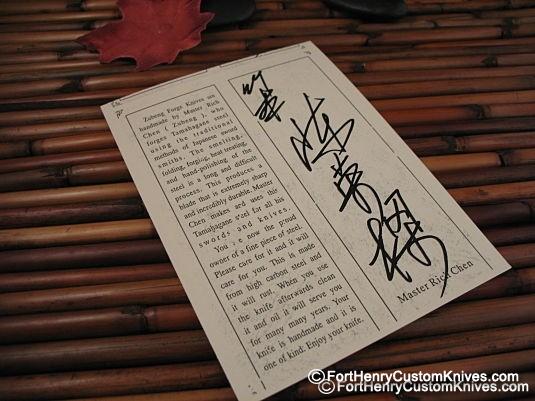 Zubeng Forge Knives are
handmade by Master Rich
Chen ( Zubeng ), who
forges Tamahagane steel
using the traditional
methods of Japanese sword
smiths. The smelting,
folding, forging, heat treating,
and hand-polishing of the
steel is a long and difficult
process. This produces a
blade that is extremely sharp
and incredibly durable. Master
Chen makes and uses this
Tamahagane steel for all his
swords and knives.
You are now the proud
owner of a fine piece of steel.
Please care for it and it will
care for you. This is made
from high carbon steel and
it will rust. When you use
the knife afterwards clean
it and oil it will serve you
for many many years. Your
knife is handmade and it is
one of kind. Enjoy your knife.
Master Rich Chen
©FortHenryCustomKnives.com
©FortHenryCustomKnives.com